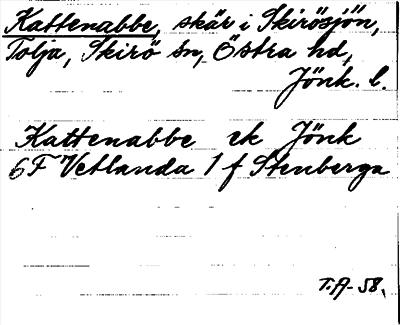 Kattenabbe, skär i Skirösjön,
Tolja, Skirö sn, Östra hd,
Jönk. l.
Kattenabbe ek Jönk
6F Vetlanda 1 f Stenberga
T.A. 58.